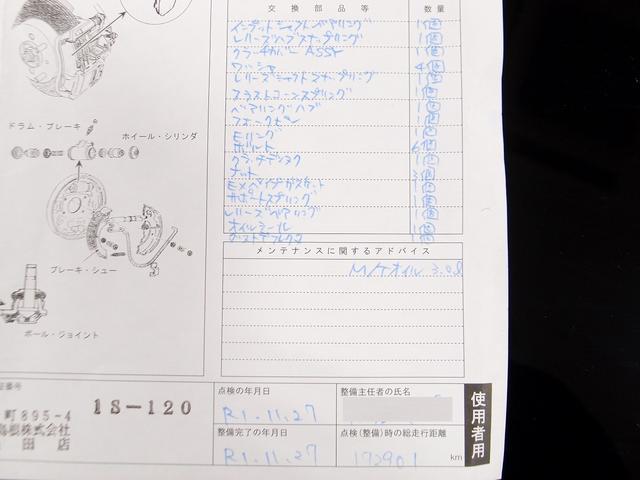 交換部品等 数量
インプットシャフトベアリング 1個
レリーズハブスナップリング 1個
クラッチカバーASSY 1個
ワッシャ 4個
レリーズシャフトスナップリング 1個
スラストコーンスプリング 1個
ベアリングハブ 1個
フォークピン 1個
Eリング 1個
ボルト 6個
クラッチデスク 1個
ナット 3個
EXパイプガスケット 1個
サポートスプリング 1個
レリーズベアリング 1個
オイルシール 1個
1個
ドラム・ブレーキ
ホイール・シリンダ
ブレーキ・シュー
ボール・ジョイント
メンテナンスに関するアドバイス
M/Tオイル 3.0ℓ
証番号
町895-4
島根株式会社
田店
1S-120
点検の年月日
R1.11.27
整備主任者の氏名
整備完了の年月日
R1.11.27
点検(整備)時の総走行距離
172901 km
使用者用